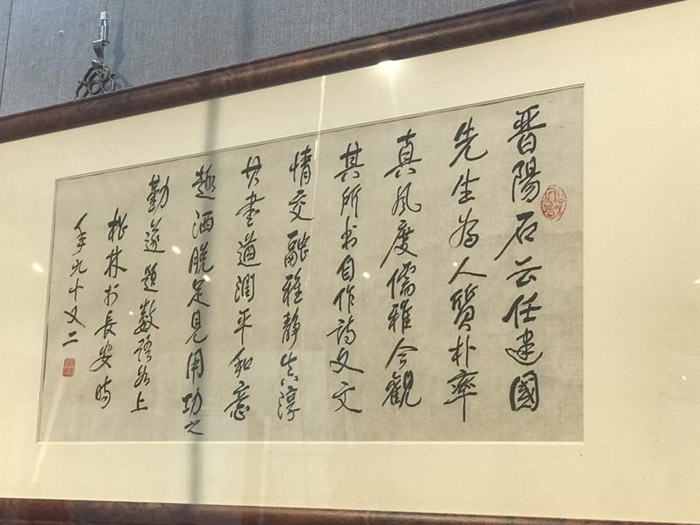 晋陽石云任建國
先生為人質朴率
真風度儒雅今觀
其所书自作詩文文
情交融雅静真淳
其書遒潤平和意
趣洒脱足見用功之
勤遂題數语如上
林於長安時
年九十又二